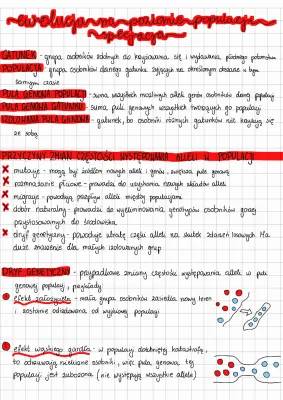 ewolucja na poziomie populacji
specjacja
GATUNEK - grupa osobników zdolnych do krzyżowania się i wydawania płodnego potomstwa
POPULACJA - grupa osobników danego gatunku żyjących na określonym obszarze w tym
samym czasie
PULA GENOWA POPULACJI - suma wszystkich możliwych alleli genów osobników danej populacji
PULA GENOWA GATUNKU - suma pul genowych wszystkich tworzących go populacji
IZOLOWANA PULA GENOWA - gatunek, bo osobniki różnych gatunków nie krzyżują się
ze sobą
PRZYCZYNY ZMIAN CZĘSTOŚCI WYSTĘPOWANIA ALLELI W POPULACJI
mutacje - mogą być źródłem nowych alleli i genów, zwiększa pulę genową
rozmnażanie płciowe - prowadzi do uzyskania nowych układów alleli
migracje - powodują przepływ alleli między populacjami
dobór naturalny - prowadzi do wyeliminowania genotypów osobników gorzej
przystosowanych do środowiska
dryf genetyczny - powoduje utratę części alleli na skutek zdarzeń losowych. Ma
duże znaczenie dla małych izolowanych grup
DRYF GENETYCZNY - przypadkowe zmiany częstości występowania alleli w puli
genowej populacji, przykłady
efekt założyciela - mała grupa osobników zasiedla nowy teren
i zostanie odizolowana od wyjściowej populacji
efekt wąskiego gardła - w populacji dotkniętej katastrofą,
to przeżywają nieliczne osobniki, więc pula genowa tej
populacji jest zubożona (nie występują wszystkie allele)